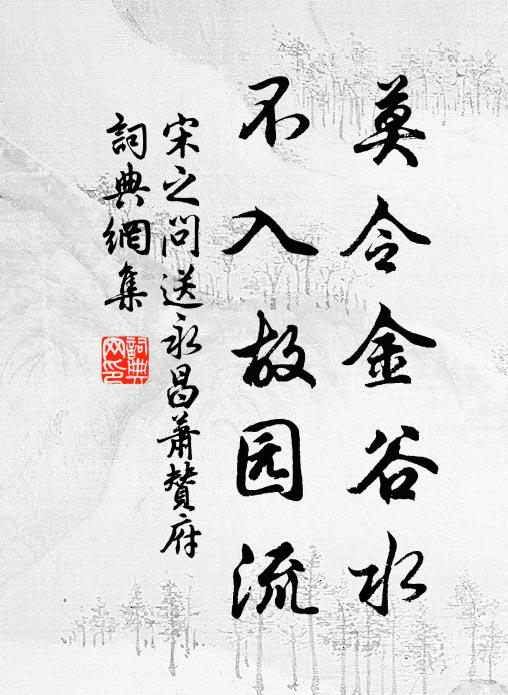 莫令金谷水
不入故园流
宋之问送永昌萧赞府
詞典網集
詞典网印